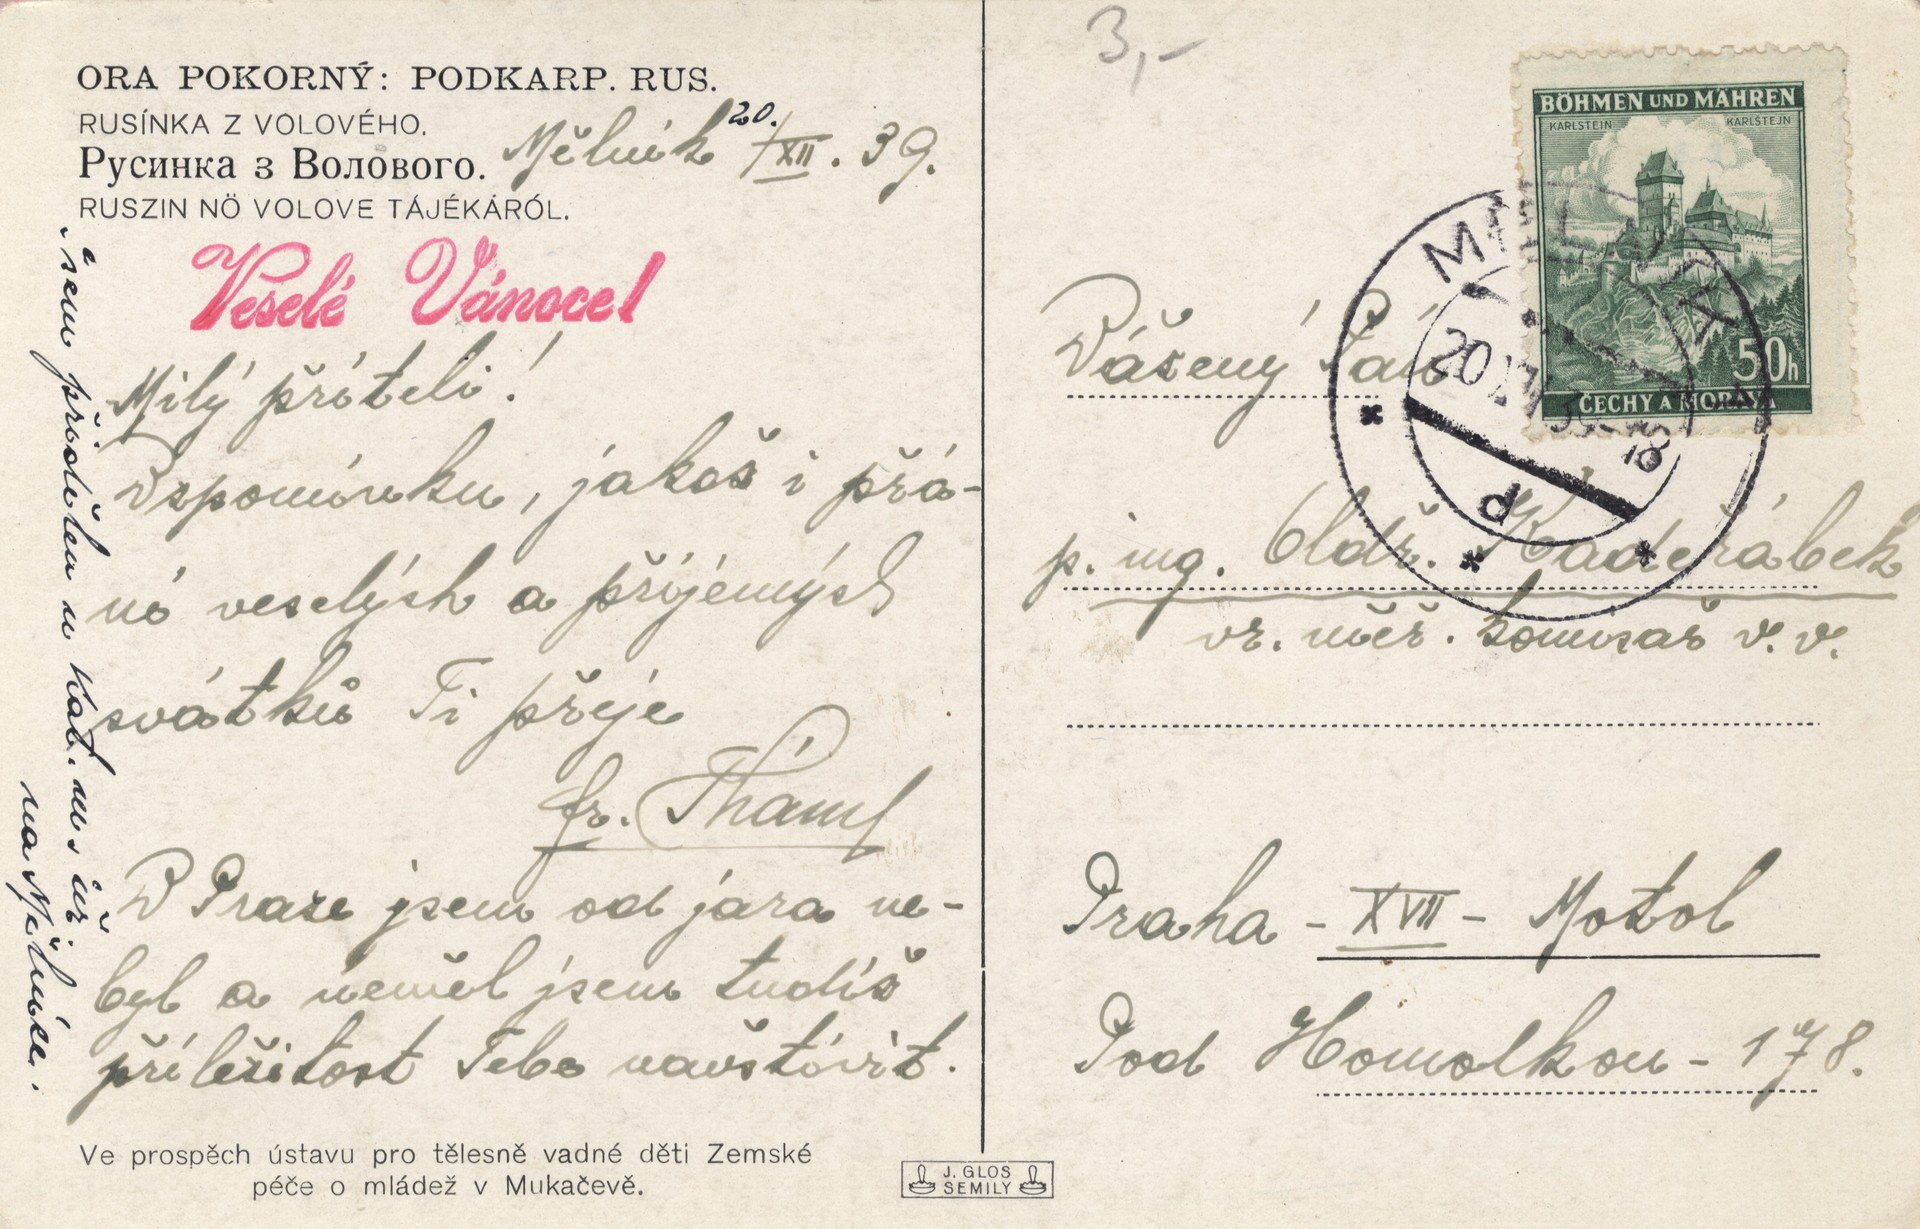 ORA POKORNÝ: PODKARP. RUS.
RUSÍNKA Z VOLOVÉHO.
Русинка з Волового.
RUSZIN NÖ VOLOVE TÁJÉKÁRÓL.
Mělník 20./XII. 39.
Veselé Vánoce!
Milý příteli!
Vzpomínku, jakož i přá-
ní veselých a příjemných
svátků Ti přeje
fr. Tháml
V Praze jsem od jara ne-
byl a neměl jsem tudíž
příležitost Tebe navštívit.
Jsem přidělen u Kat. měř. úř.
na Mělníce.
Ve prospěch ústavu pro tělesně vadné děti Zemské
péče o mládež v Mukačevě.
J. GLOS
SEMILY
3,-
BÖHMEN UND MÄHREN
KARLSTEIN KARLŠTEJN
50h
ČECHY A MORAVA
20 XII 39-18
d
Vážený Pán
p. ing. Oldř. Kadeřábek
vr. měř. komisař v. v.
Praha - XVII - Motol
Pod Homolkou - 178.